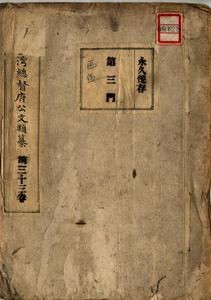 永久保存
第三門
灣總督府公文類纂
第三十三卷